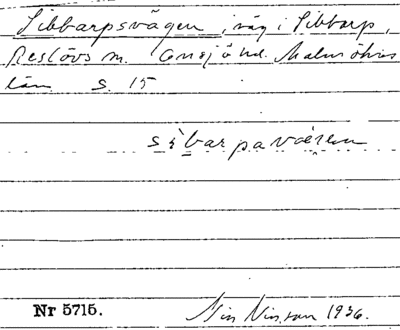 Sibbarpsvägen, väg i Sibbarp,
Reslövs sn. Onsjö hd. Malmöhus
län s. 15
Nr 5715. Nils Nilsson 1936.